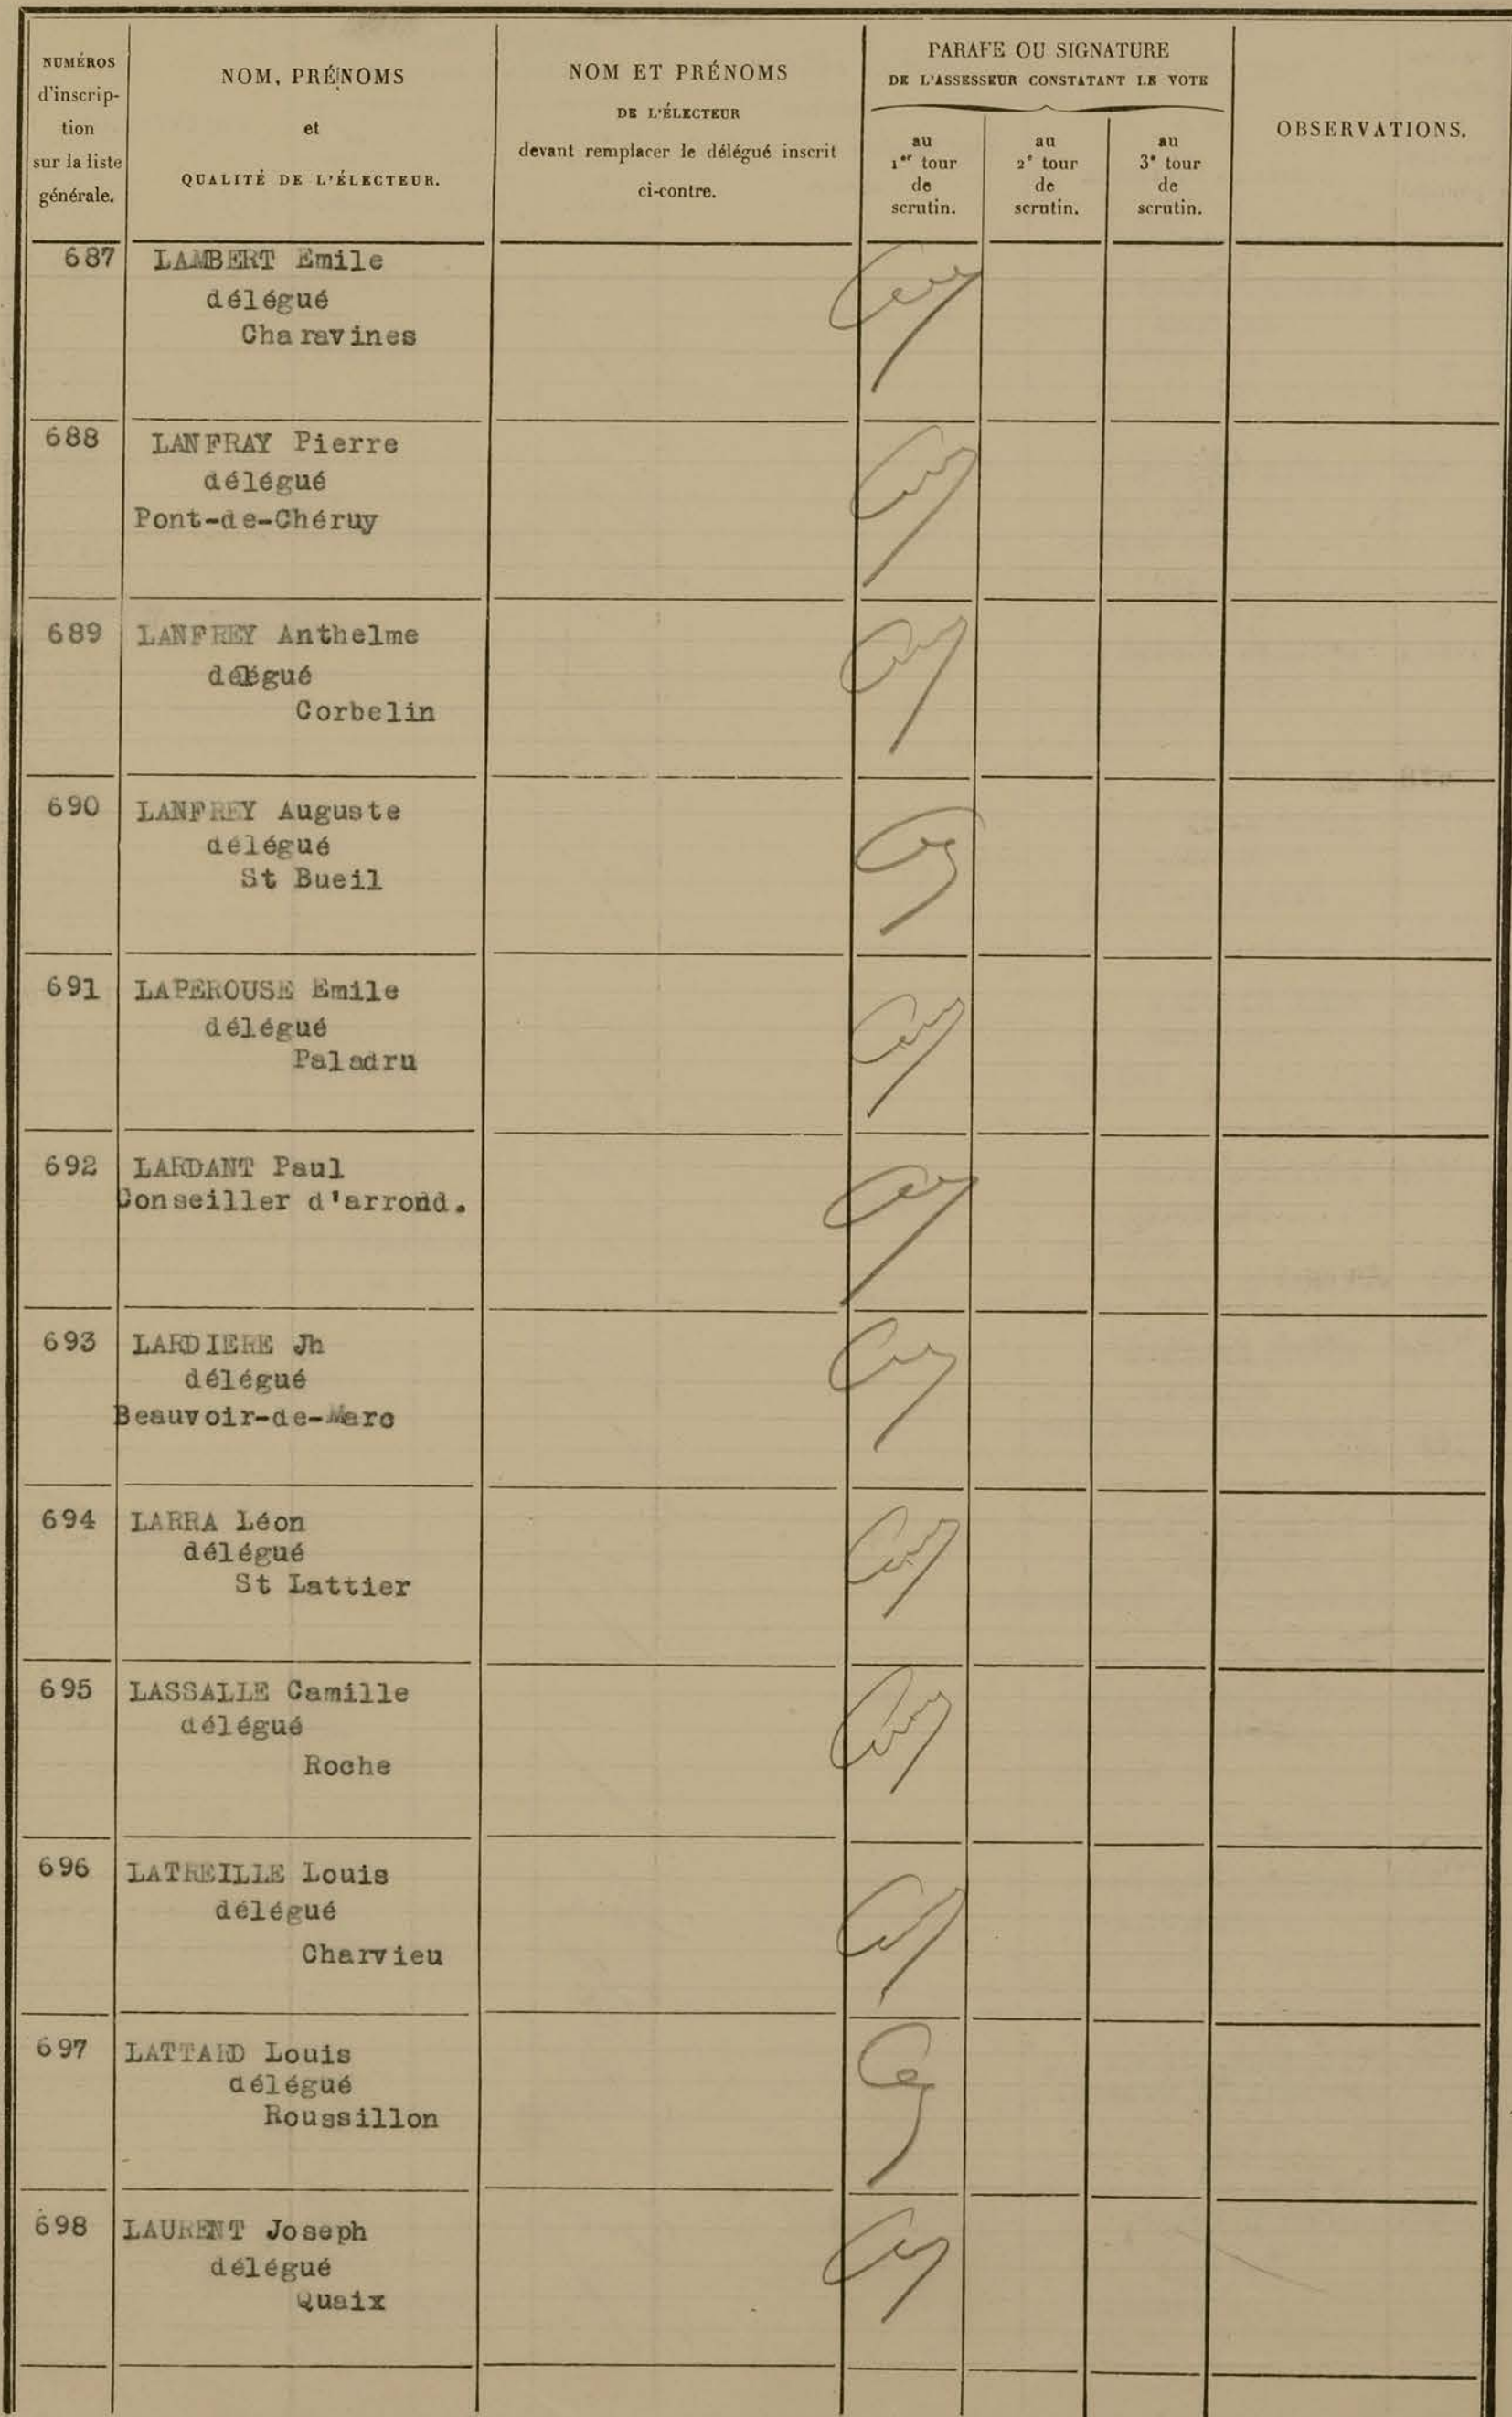 NUMÉROS
d'inscrip-
tion
sur la liste
générale.
NOM, PRÉNOMS
et
QUALITÉ DE L'ÉLECTEUR.
NOM ET PRÉNOMS
DE L'ÉLECTEUR
devant remplacer le délégué inscrit
ci-contre.
PARAFE OU SIGNATURE
DE L'ASSESSEUR CONSTATANT LE VOTE
au
1er tour
de
scrutin.
au
2e tour
de
scrutin.
au
3e tour
de
scrutin.
OBSERVATIONS.
687 LAMBERT Emile
délégué
Charavines
688 LANFRAY Pierre
délégué
Pont-de-Chéruy
689 LANFREY Anthelme
délégué
Corbelin
690 LANFREY Auguste
délégué
St Bueil
691 LAPEROUSE Emile
délégué
Paladru
692 LARDANT Paul
Conseiller d'arrond.
693 LARDIERE Jh
délégué
Beauvoir-de-Marc
694 LARRA Léon
délégué
St Lattier
695 LASSALLE Camille
délégué
Roche
696 LATREILLE Louis
délégué
Charvieu
697 LATTARD Louis
délégué
Roussillon
698 LAURENT Joseph
délégué
Quaix